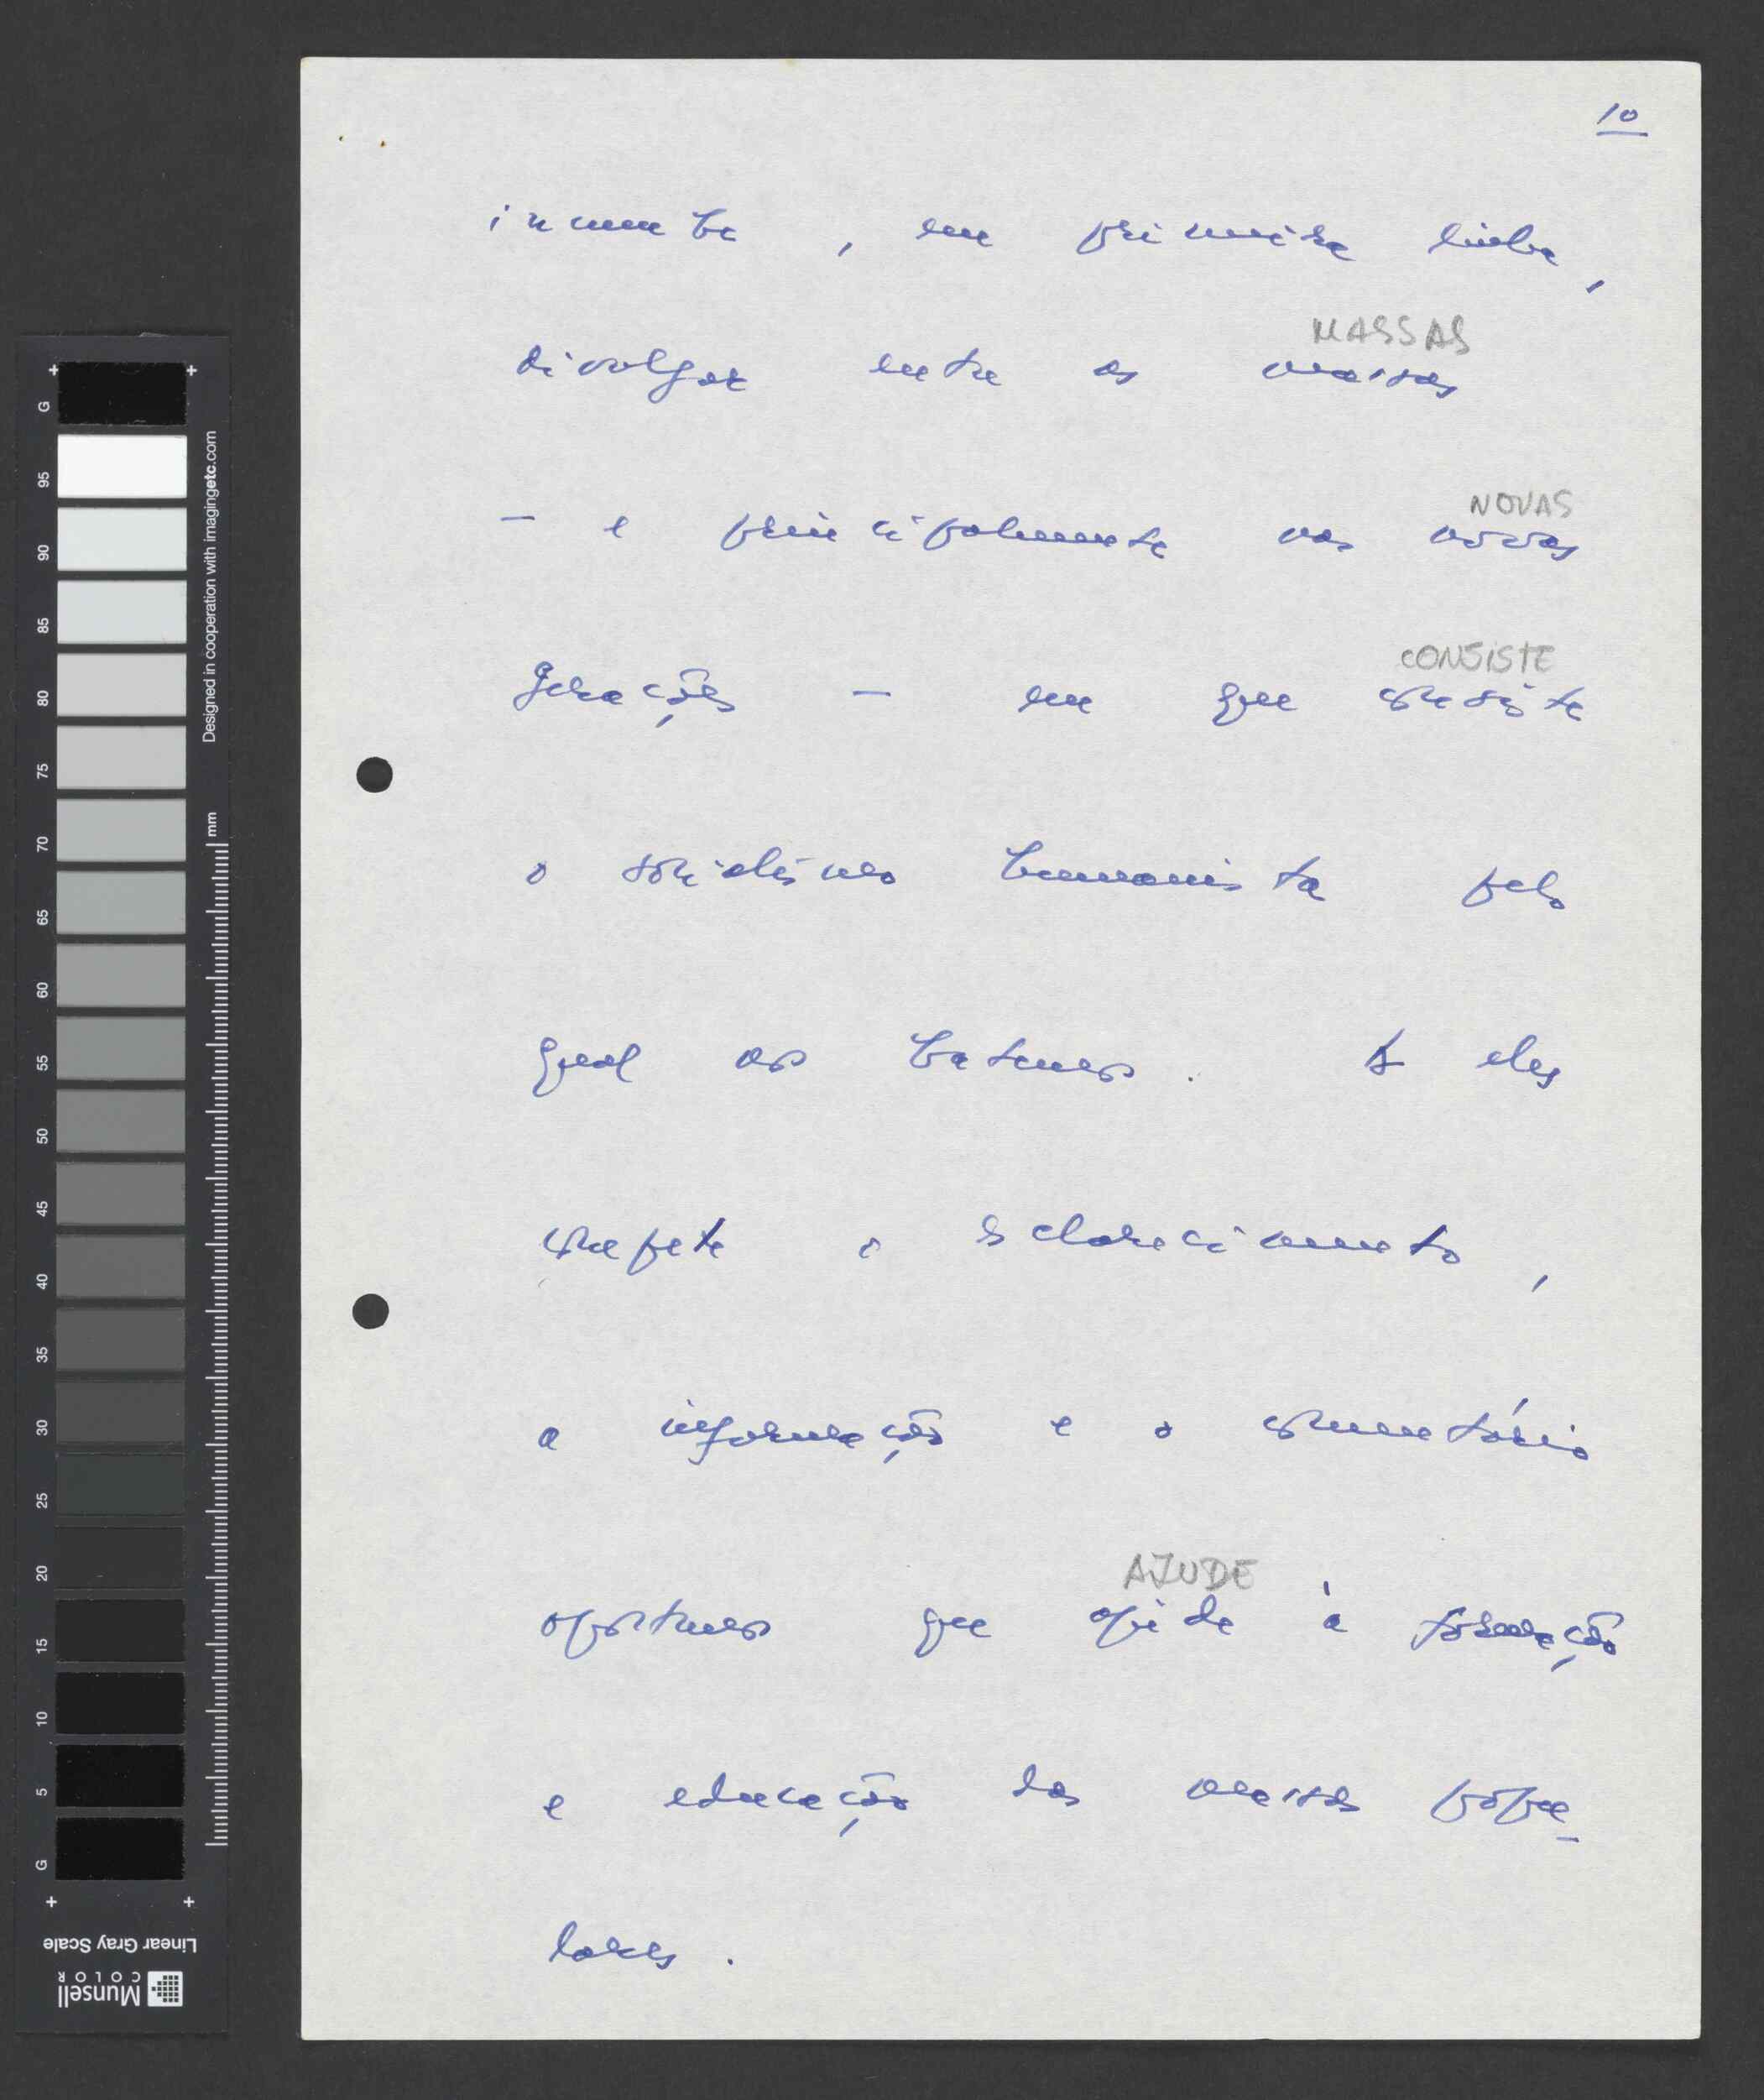 10
incumbe, em primeira linha,
MASSAS
divulgar entre as massas
NOVAS
- e principalmente nas novas
CONSISTE
gerações - em que consiste
o socialismo humanista pelo
qual nos batemos. A eles
compete o esclarecimento,
a informação e o comentário
AJUDE
oportunos que ajude à formação
e educação das massas popu-
lares.
G 95 90 85 80 75 70 65 60 55 50 45 40 35 30 25 20 15 10 5 G
Designed in cooperation with imagingetc.com
mm
Linear Gray Scale
Munsell
COLOR